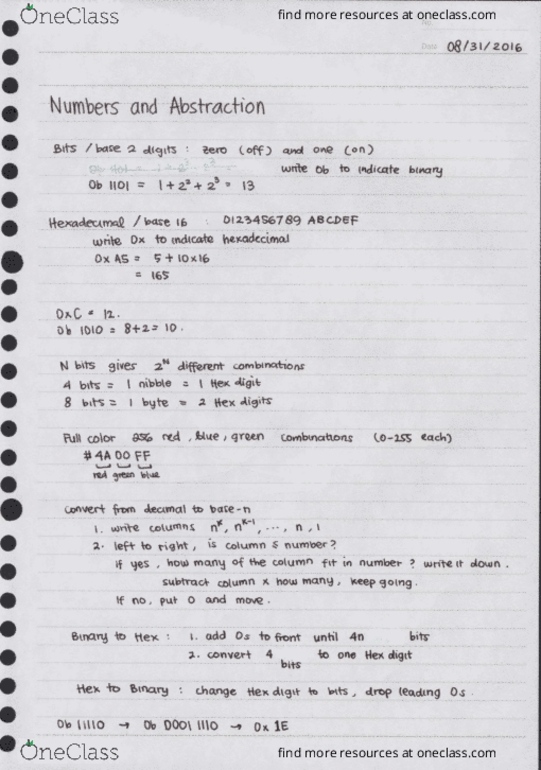 OneClass
find more resources at oneclass.com
Date 08/31/2016
Numbers and Abstraction
Bits / base 2 digits : zero (off) and one (on)
write 0b to indicate binary
0b 1101 = 1 + 2² + 2³ = 13
Hexadecimal / base 16 : 0123456789 ABCDEF
write 0x to indicate hexadecimal
0x A5 = 5 + 10 x 16
= 165
0xC = 12.
0b 1010 = 8+2 = 10.
N bits gives 2ᴺ different combinations
4 bits = 1 nibble = 1 Hex digit
8 bits = 1 byte = 2 Hex digits
Full color 256 red, blue, green combinations (0-255 each)
# 4A 00 FF
red green blue
Convert from decimal to base-n
1. write columns nᴷ, nᴷ⁻¹, ..., n, 1
2. left to right, is column ≤ number?
if yes, how many of the column fit in number ? write it down.
subtract column x how many, keep going.
If no, put 0 and move.
Binary to Hex : 1. add 0s to front until 4n bits
2. convert 4 bits to one Hex digit
Hex to Binary : change Hex digit to bits, drop leading 0s.
0b 11110 → 0b 0001 1110 → 0x 1E
OneClass
find more resources at oneclass.com